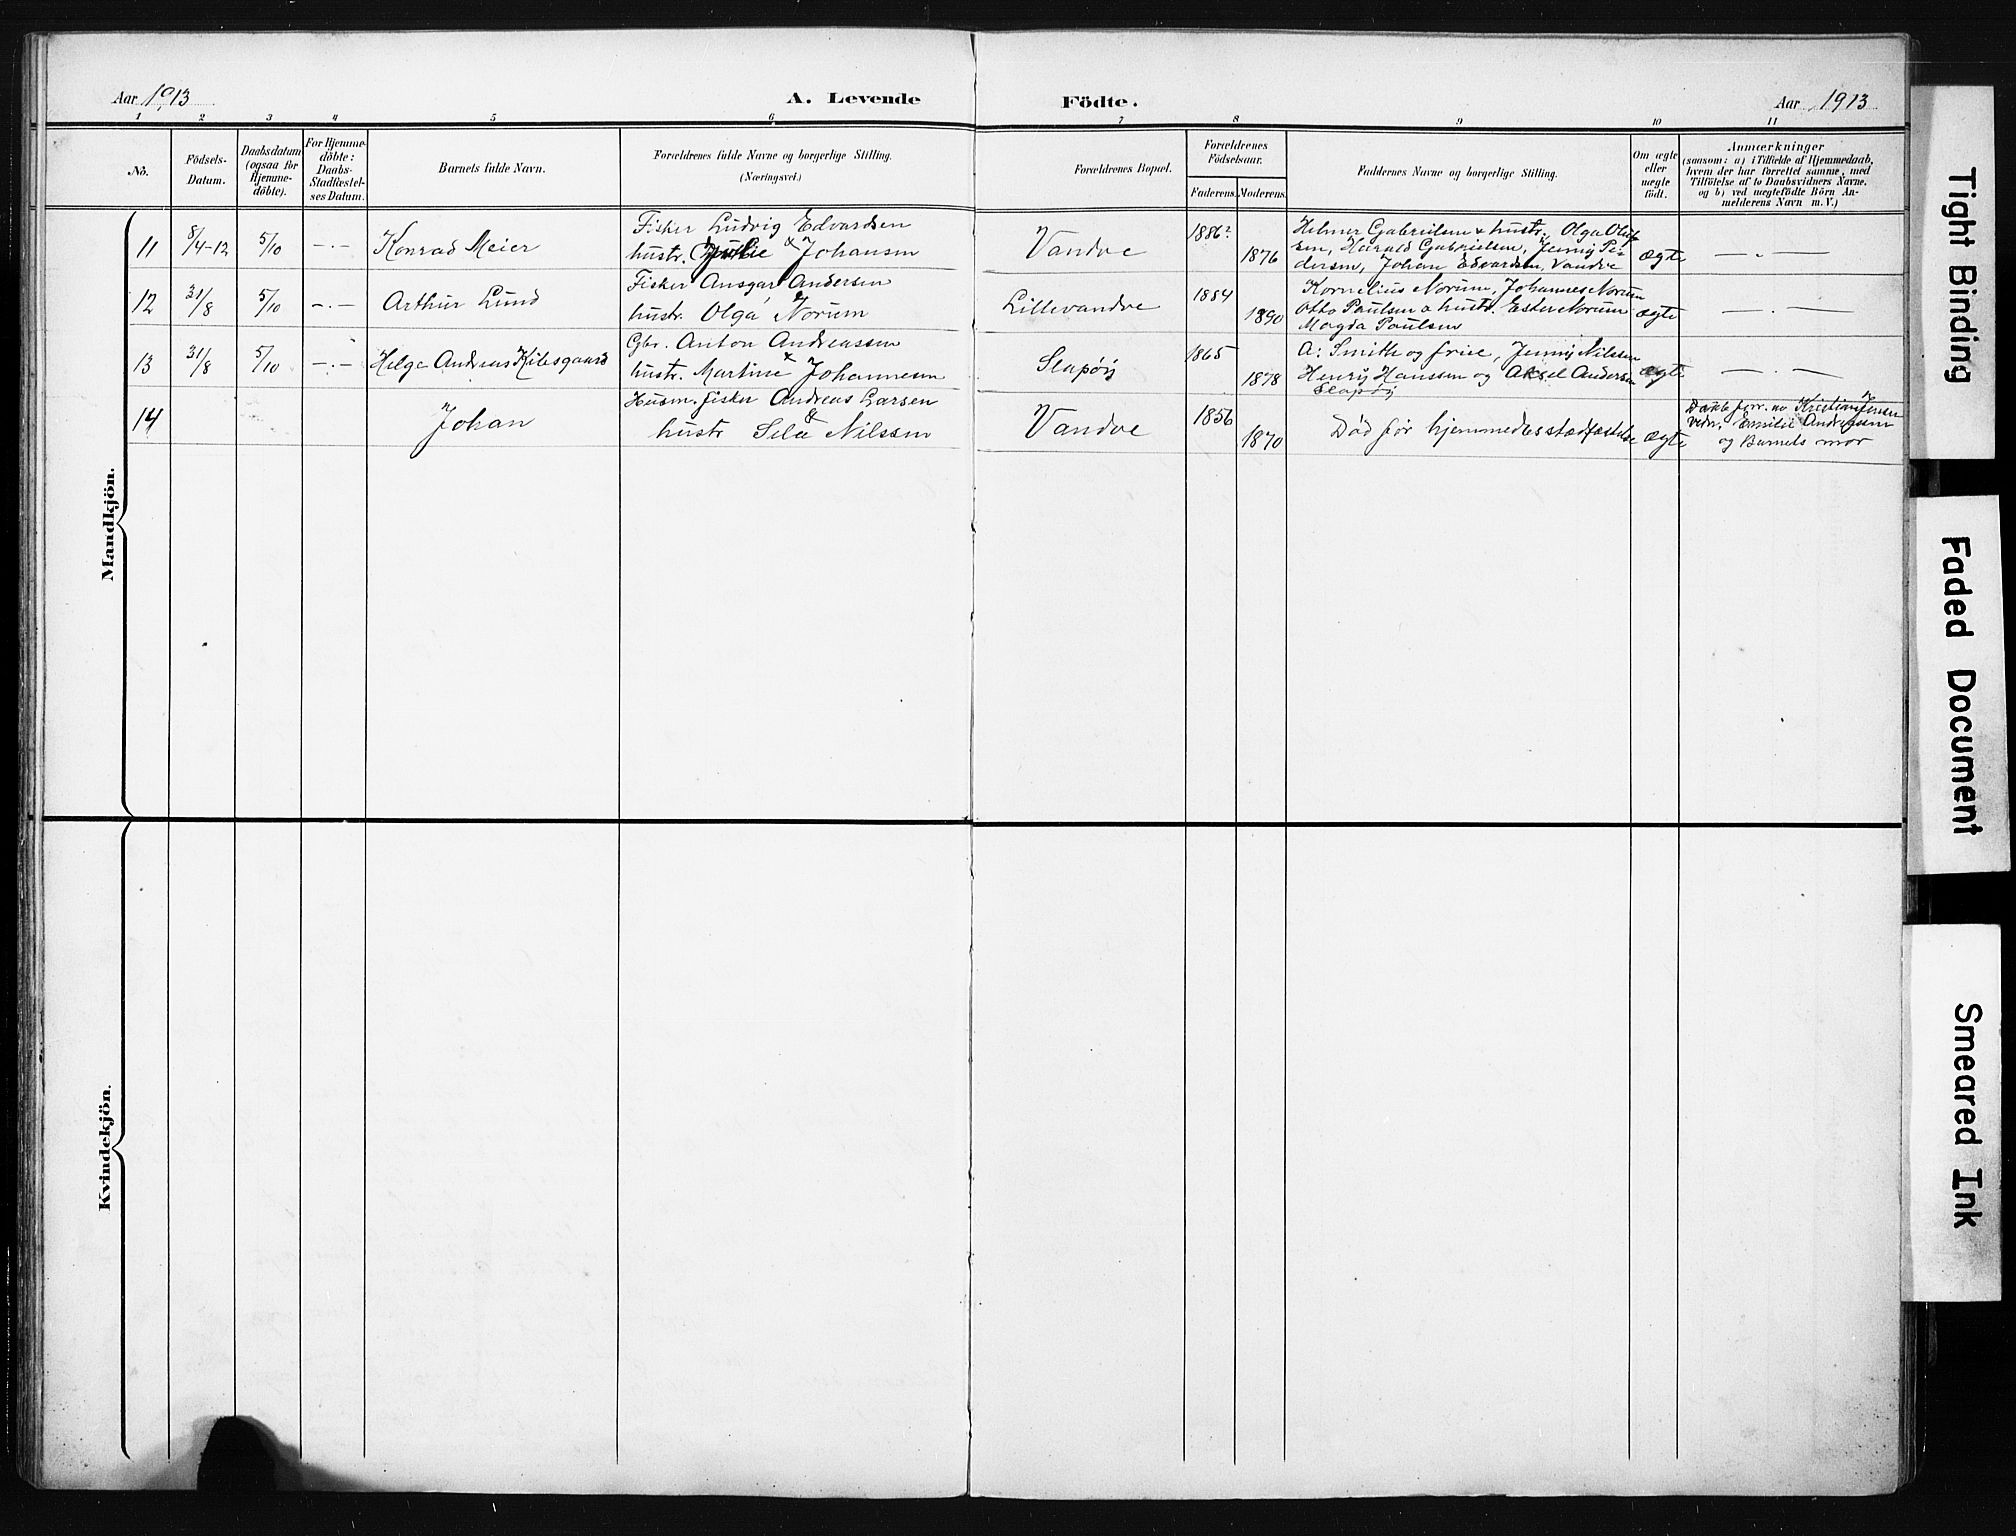 Aar 1913
A. Levende Födte.
Aar 1913
1 2 3 4 5 6 7 8 9 10 11
No.
Födsels-
Datum.
Daabsdatum
(ogsaa for
Hjemme-
döbte).
For Hjemme-
döbte:
Daabs-
Stadfæstel-
ses Datum.
Barnets fulde Navn.
Forældrenes fulde Navne og borgerlige Stilling.
(Næringsvei.)
Forældrenes Bopæl.
Forældrenes
Födselsaar.
Faderens. Moderens.
Faddernes Navne og borgerlige Stilling.
Om ægte
eller
uægte
födt.
Anmærkninger
(saasom: a) i Tilfælde af Hjemmedaab,
hvem der har forrettet samme, med
Tilföielse af to Daabsvidners Navne,
og b) ved uægtefödte Börn An-
melderens Navn m. V.)
Mandkjön.
11 8/4-12 5/10 —·— Konrad Meier
Fisker Ludvig Edvardsen
hustr. Julie & Johansen
Vandve 1886? 1876
Helmer Gabrielsen & hustr. Olga Oluf
sen, Harald Gabrielsen, Jenny Pe-
dersen, Johan Edvardsen, Vandve
ægte —·—
12 31/8 5/10 —·— Arthur Lund
Fisker Ansgar Andersen
hustr. Olga Norum
Lillevandve 1884 1890
Kornelius Norum, Johannes Norum
Otto Paulsen & hustr. Ester Norum
Magda Paulsen
ægte —·—
13 31/8 5/10 —·— Helge Andreas Kilesgaard
Gbr. Anton Andreassen
hustr. Martine & Johannesen
Slapøy 1865 1878
A. Smith og frue, Jenny Nilssen
Henry Hanssen og Aksel Andersen
Slapøy
ægte —·—
14 Johan
Husm. fisker Andreas Larsen
&
hustr Nilssen
Vandve 1856 1870
Død før hjemmed. stadfæstelse
ægte
Daab forr. av Kristian Jensen
Vidn. Emilie Andreassen
og Barnets mor
Kvindekjön.
Tight Binding
Faded Document
Smeared Ink